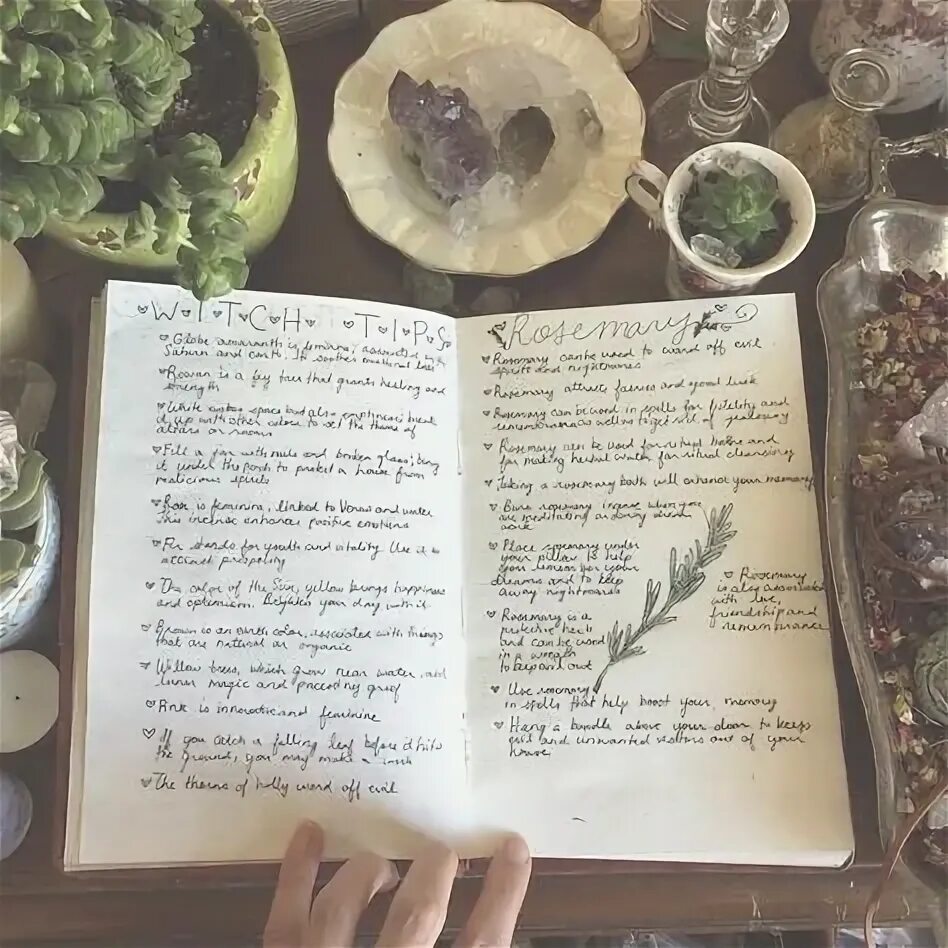 WITCH TIPS
Globe amaranth is feminine, associated with
Saturn and earth. It soothes emotional
Rowan is a fey tree that grants healing and
strength
White space but also emptiness break
it up with other colors to set the theme of
altars or rooms
Fill a jar with nails and broken glass; bury
it under the porch to protect a house from
malicious spirits
is feminine, linked to Venus and water
this incense enhances positive emotions
Fir stands for youth and vitality Use it to
attract prosperity
The color of the Sun, yellow brings happiness
and optimism. your day with it.
Brown is an earth color, associated with things
that are natural or organic
Willow trees, which grow near water, aid
lunar magic and grief
Pink is and feminine
If you catch a falling leaf before it hits
the ground, you may make a wish
The thorns of holly ward off evil
Rosemary
Rosemary can be used to ward off evil
spirits and nightmares
Rosemary attracts fairies and good luck
Rosemary can be used in spells for fidelity and
remembrance as well as to get rid of jealousy
Rosemary can be used for ritual baths and
for making herbal water for ritual cleansing
Taking a rosemary bath will your memory
Burn rosemary incense when you
are meditating or doing dream
work
Place rosemary under
your pillow to help
you remember your
dreams and to keep
away nightmares
Rosemary
is also associated
with love,
friendship and
remembrance
Rosemary is a
protective herb
and can be used
in a wreath
to keep out
Use rosemary
in spells that help boost your memory
Hang a bundle above your door to keep
evil and unwanted visitors out of your
house